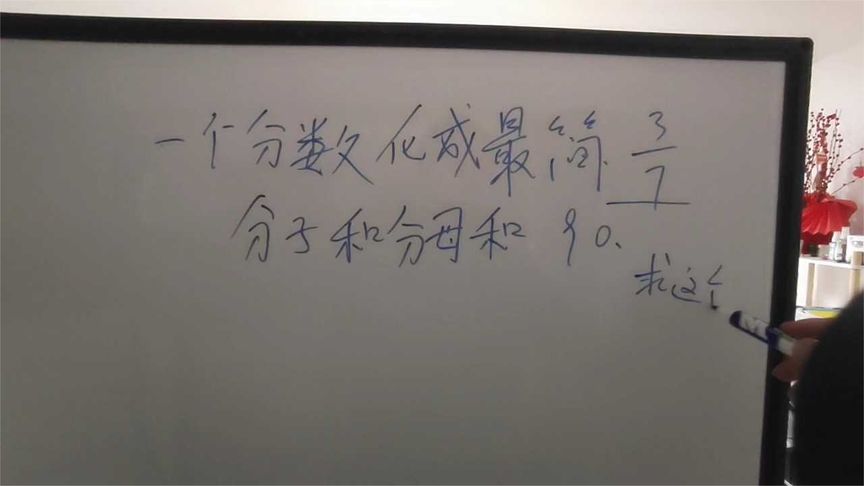 一个分数化成最简 3/7
分子和分母和 90.
求这个